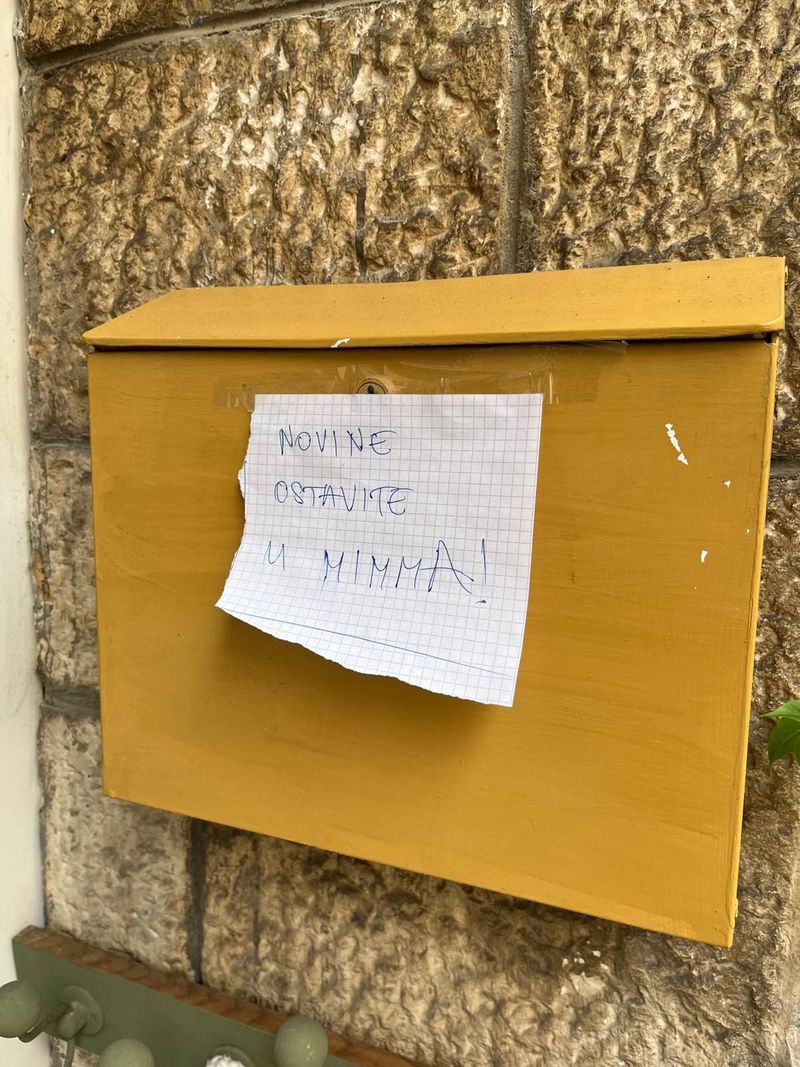 NOVINE
OSTAVITE
U MIMMA!